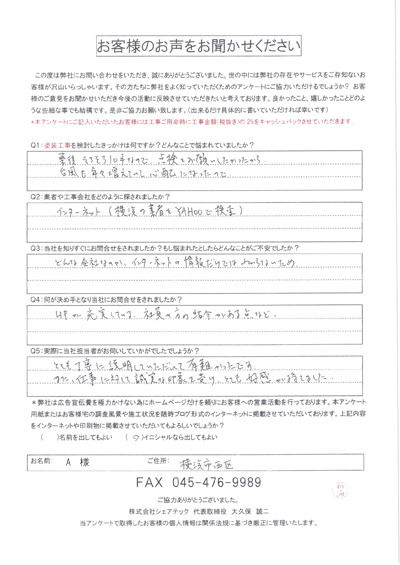 お客様のお声をお聞かせください
この度は弊社にお問い合わせをいただき、誠にありがとうございました。世の中には弊社の存在やサービスをご存知ないお
客様が沢山いらっしゃいます。その方たちに弊社をよく知っていただくためのアンケートにご協力いただけるでしょうか？ お客
様のご意見をお聞かせいただき今後の活動に反映させていただきたいと考えております。良かったこと、嬉しかったことどのよ
うな些細な事でも結構です。是非ご協力お願い致します。（出来るだけ具体的に書いていただければ幸いです）
*本アンケートにご記入いただいたお客様には工事ご用命時に工事金額(税抜き)の 2%をキャッシュバックさせていただきます。
Q1：塗装工事を検討したきっかけは何ですか？どんなことで悩まれていましたか？
築後 そろそろ10年なので、点検をお願いしたかったから。
台風も年々増えているし心配になったので
Q2：業者や工事会社をどのように探されましたか？
インターネット（横浜の業者をYAHOOで検索）
Q3：当社を知りすぐにお問合せをされましたか？もし悩まれたとしたらどんなことがご不安でしたか？
どんな会社なのか、インターネットの情報だけではわからないため。
Q4：何が決め手となり当社にお問合せをされましたか？
HPが充実している、社員の方の紹介がある点など。
Q5：実際に当社担当者がお伺いしていかがでしたでしょうか？
とても丁寧に説明していただいて有難かったです。
また仕事に対して誠実な印象を受け、とても好感が持てました。
*弊社は広告宣伝費を極力かけない為にホームページだけを頼りにお客様への営業活動を行っております。本アンケート
用紙またはお客様宅の調査風景や施工状況を随時ブログ形式のインターネットに掲載させていただいております。上記内容
をインターネットや印刷物に掲載させていただいてもよろしいでしょうか？
（ ）名前を出してもよい （○）イニシャルなら出してもよい
お名前： A 様 ご住所： 横浜市西区
FAX 045-476-9989
ご協力ありがとうございました。
株式会社シェアテック 代表取締役 大久保 誠二
当アンケートで取得したお客様の個人情報は関係法規に基づき厳正に管理いたします。